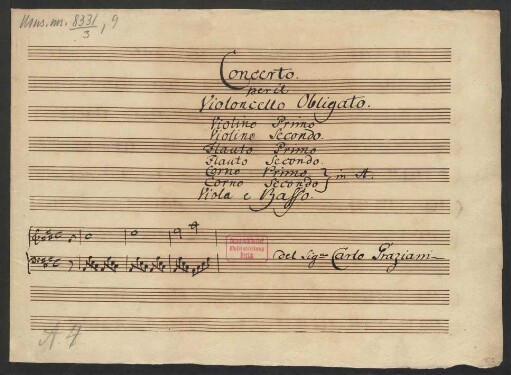 Mus. ms. 8331/3, 9
Concerto.
per il
Violoncello Obligato.
Violino Primo
Violino Secondo.
Flauto Primo
Flauto Secondo.
Corno Primo
Corno Secondo } in A.
Viola e Basso.
del Sigre Carlo Graziani